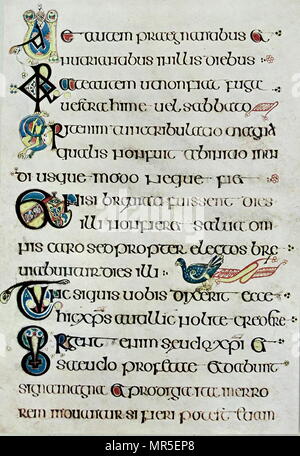 Ue autem praegnantibus et
nutrientibus in illis diebus
Orate autem ut non fiat fuga
uestra hieme uel sabbato
Erit enim tunc tribulatio magna
qualis non fuit ab initio mun
di usque modo neque fiet
Et nisi breuiati fuissent dies
illi non fieret salua om
nis caro sed propter electos bre
uiabuntur dies illi
Tunc si quis uobis dixerit ecce
hic xps aut illic nolite credere
Surgent enim seudo xpi et
seudo profetae et dabunt
signa magna et prodigia ita in erro
rem si fieri potest etiam
alamy
MR5EP8